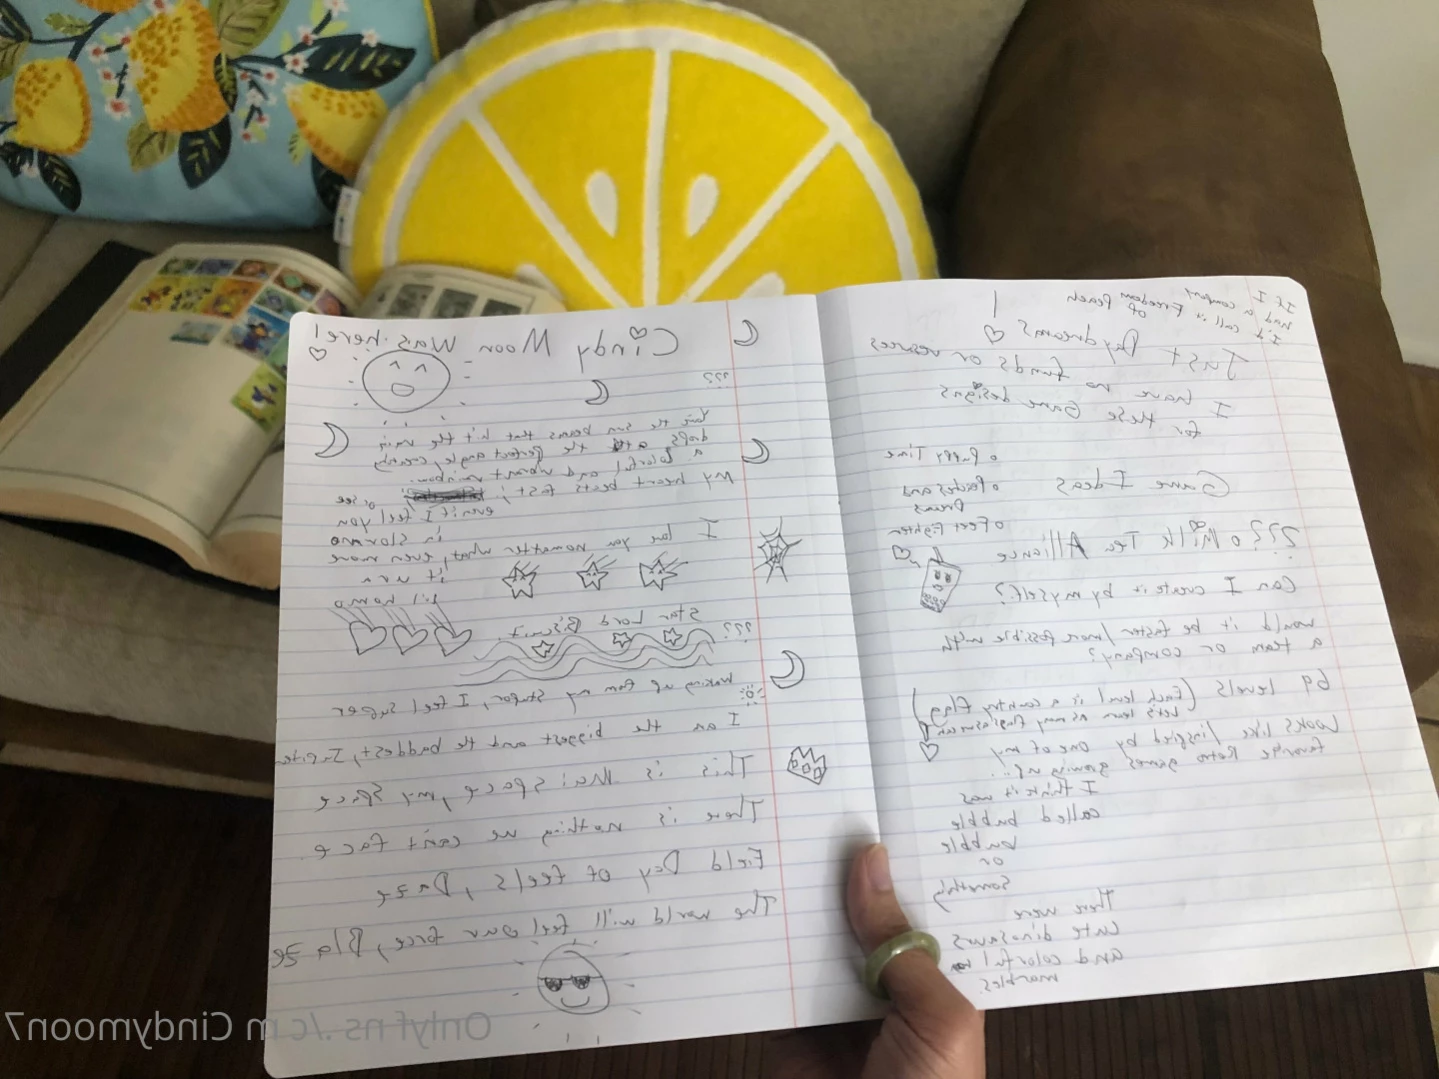 If I
had a company
I'd call it Freedom Peach
Just Daydreams
I have no funds or
for these Game designs
Game Ideas
o Puppy Time
o Pandas and
Drums
o Feet Fighter
??? o Milk Tea Alliance
Can I create it by myself?
would it be faster/more possible with
a team or company?
69 levels (Each level is a country flag)
Let's learn as many flags as we can
Looks like/inspired by one of my
favorite Retro games growing up!..
I think it was
called bubble
bubble
or
something
There were
cute dinosaurs
and colorful
marbles
Cindy Moon was here!
???
the sun beams that hit the rain
drops at the perfect angle, creating
a colorful and vibrant rainbow.
My heart beats fast;
even if I feel you
in slowmo
I love you no matter what, even more
Lil homo
Star Lord Biscuit.
???
Waking up from my stupor, I feel super
I am the biggest and the baddest,
This is Mai space, my space
There is nothing we can't face.
Field Day of feels, Daze
The world will feel our force, Blaze
Cindymoon7